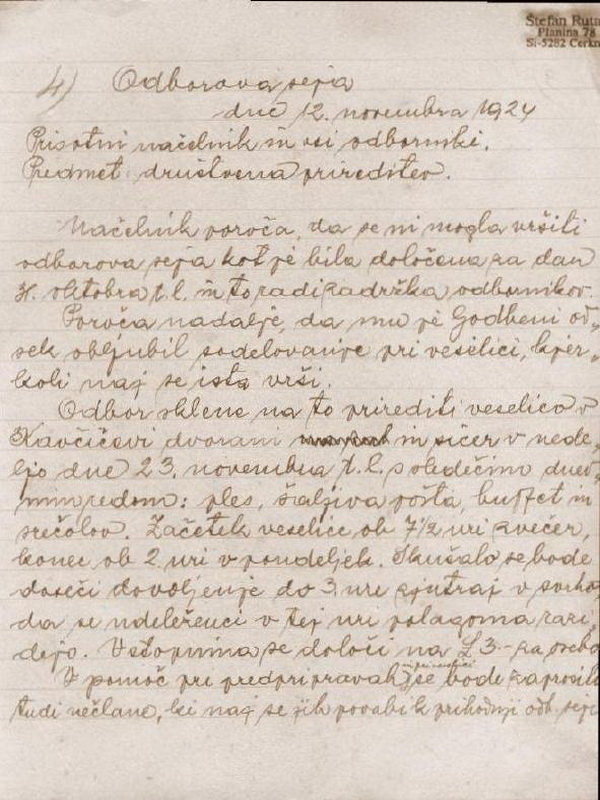 Štefan Ruta
Planina 78
SI-5282 Cerkn
4) Odborova seja
dne 12. novembra 1924
Prisotni načelnik in vsi odborniki.
Predmet: društvena prireditev.
Načelnik poroča, da se ni mogla vršiti
odborova seja kot je bila določena za dan
31. oktobra t.l. in to radi zadržka odbornikov.
Poroča nadalje, da mu je Godbeni od„
sek obljubil sodelovanje pri veselici, kjer„
koli naj se ista vrši.
Odbor sklene na to prirediti veselico v
Kavčičevi dvorani in sicer v nede„
ljo dne 23. novembra t.l. s sledečim dnev„
nim redom: ples, šaljiva pošta, buffet in
srečolov. Začetek veselice ob 7½ uri zvečer,
konec ob 2 uri v pondeljek. Skušalo se bode
doseči dovoljenje do 3 ure zjutraj v svrho
da se udeleženci v tej uri polagoma razi„
dejo. Vstopnina se določi na £ 3.- za osebo
V pomoč pri predpripravah in veselici se bode zaprosilo
tudi nečlane, ki naj se jih povabi k prihodnji odb. seji